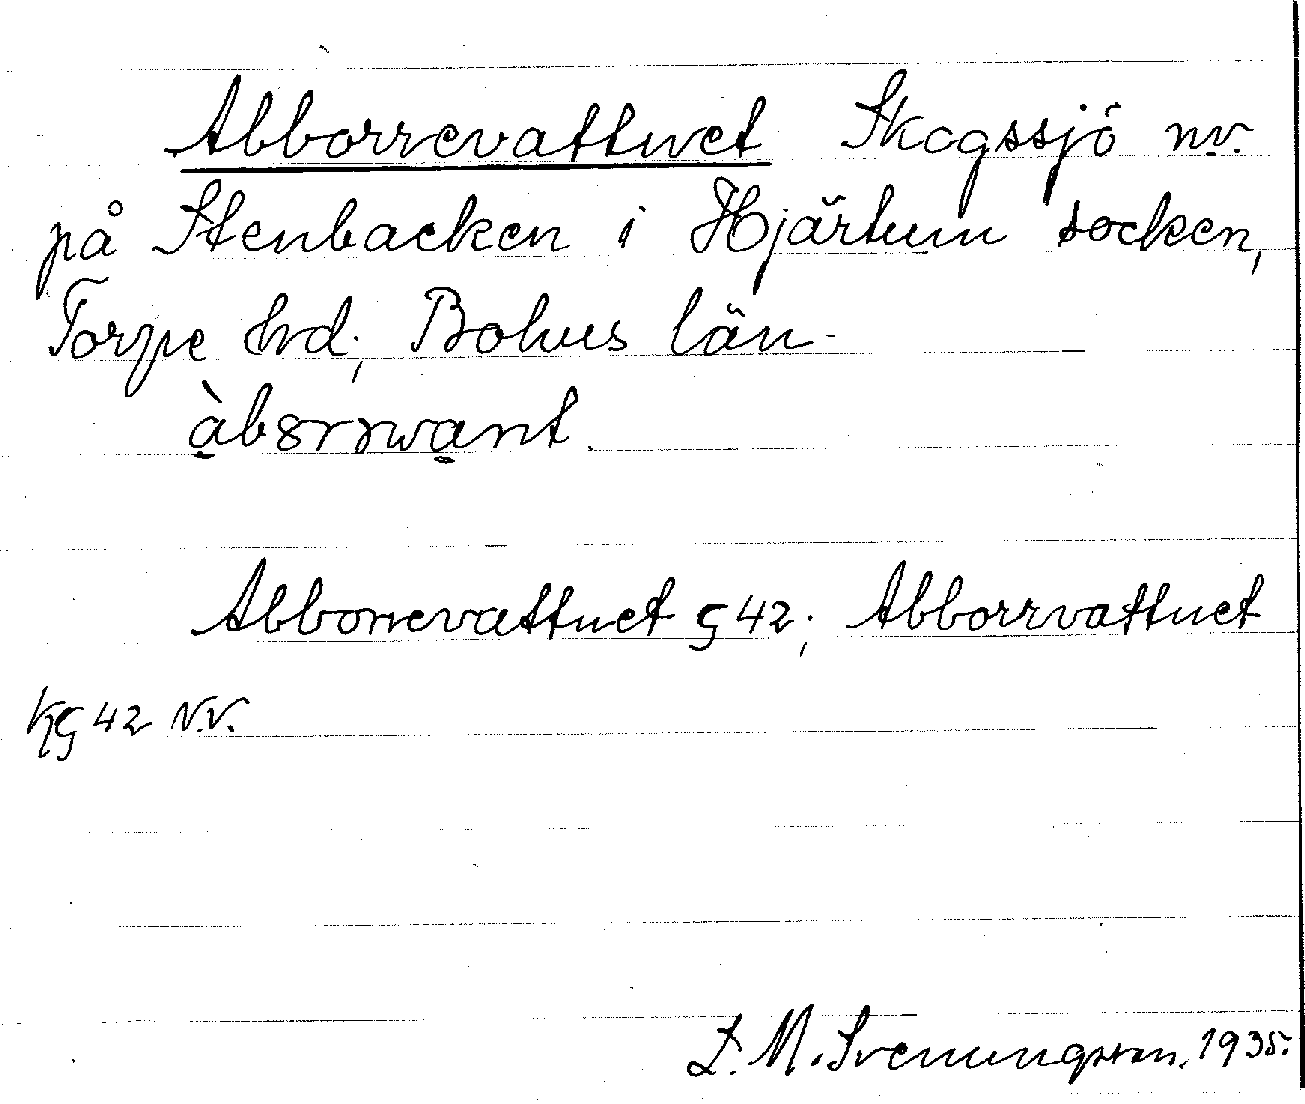 Abborrevattnet Skogssjö nv.
på Stenbacken i Hjärtum socken,
Torpe hd; Bohus län.
àbꝏrrwant
Abborrevattnet G 42; Abborrvattnet
KG 42 N.V.
L. M. Svenungsson, 1935.